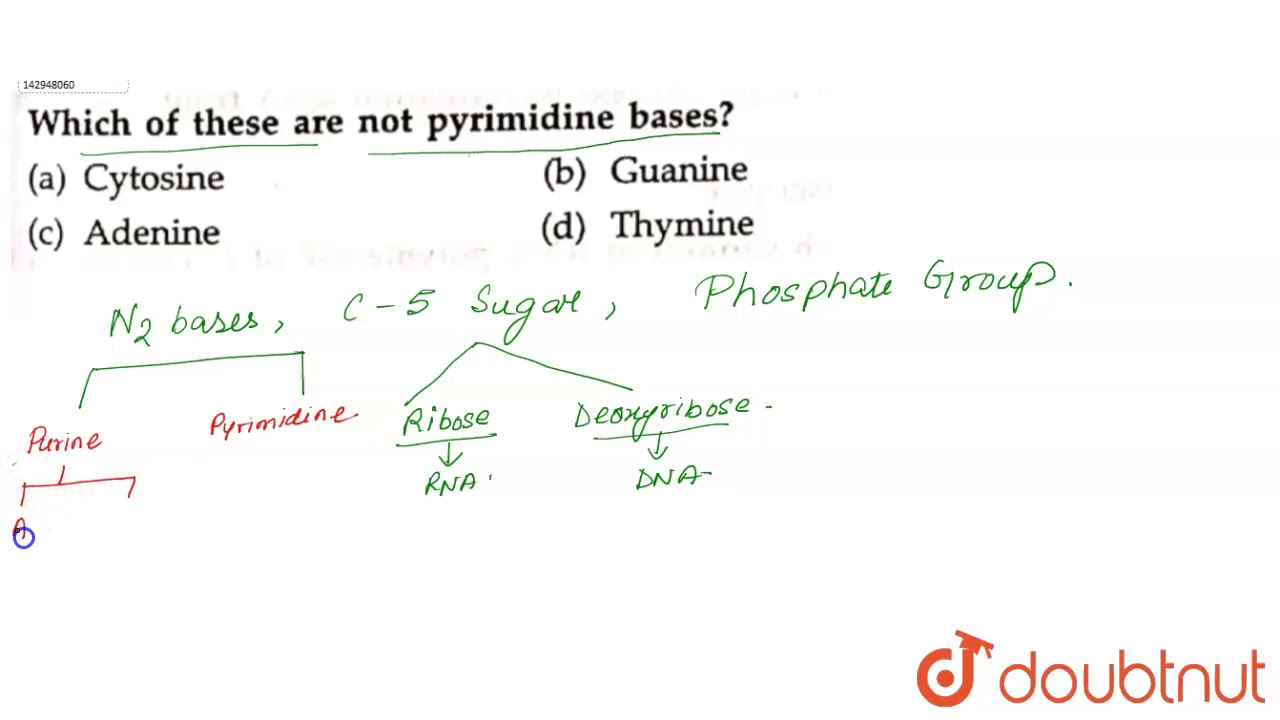 142948060
Which of these are not pyrimidine bases?
(a) Cytosine (b) Guanine
(c) Adenine (d) Thymine
N2 bases, C-5 Sugar, Phosphate Group.
Purine Pyrimidine Ribose Deoxyribose
RNA DNA
A
doubtnut